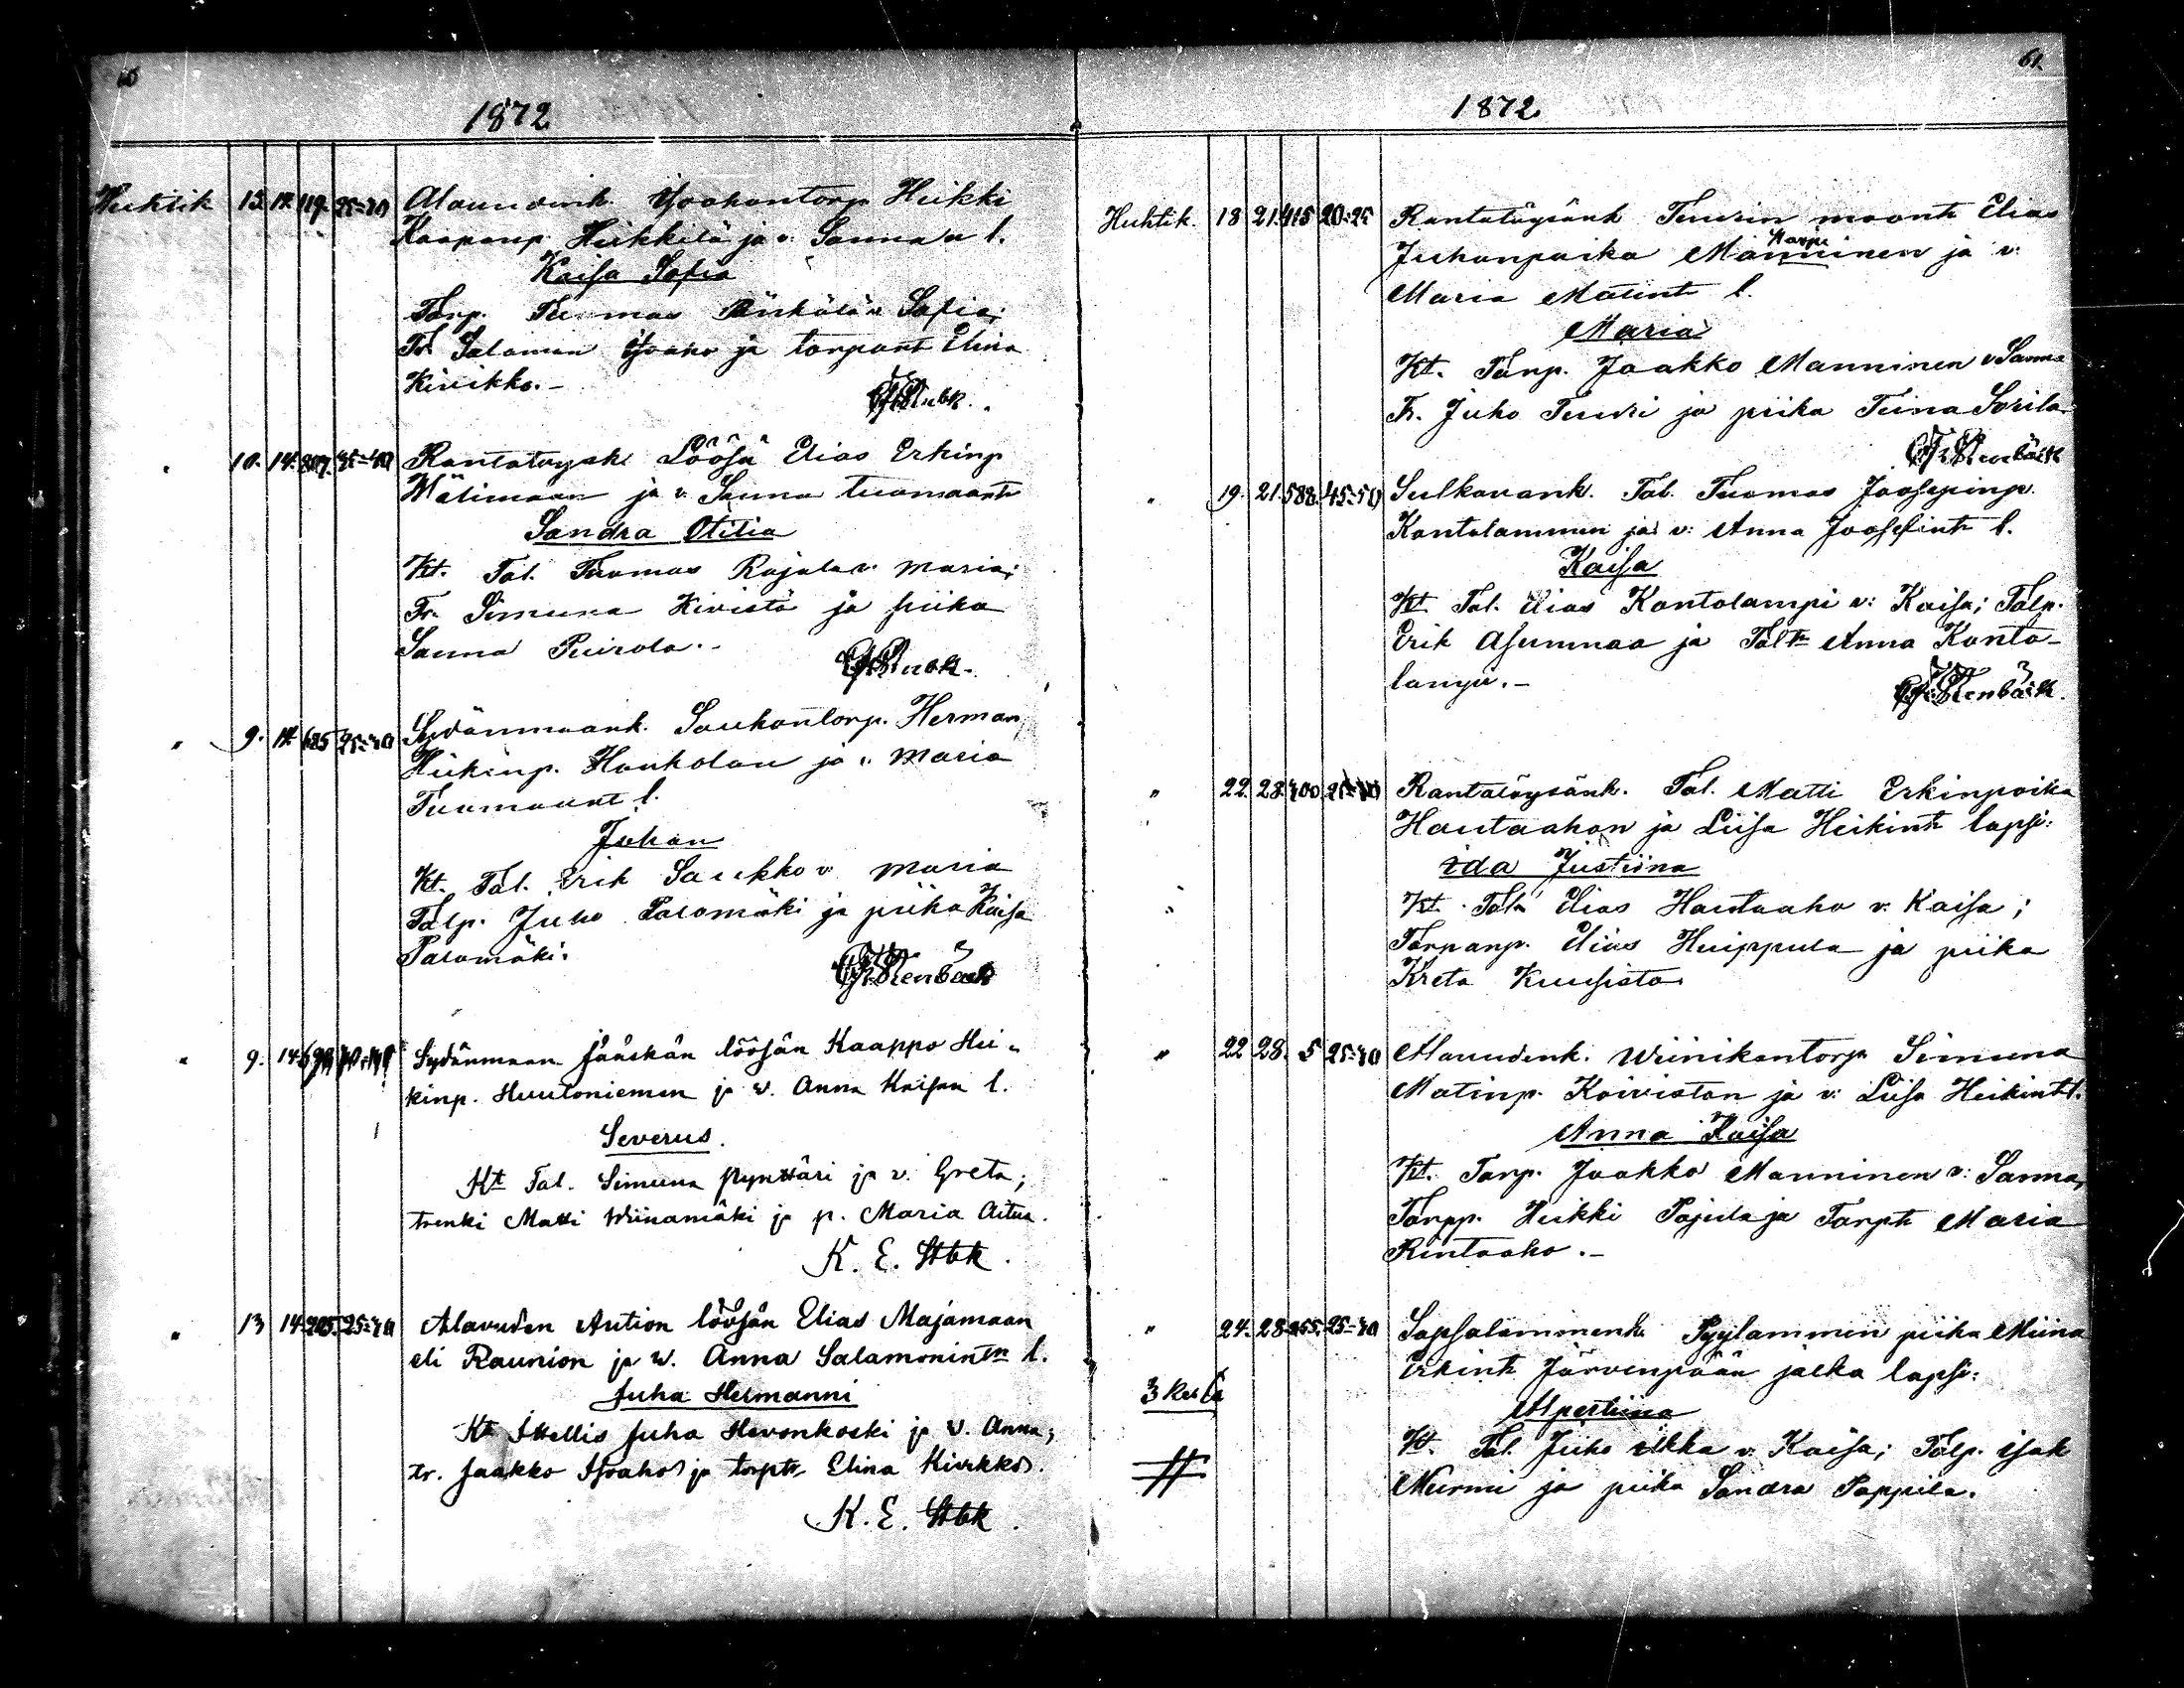 60
1872
Huhtik 13. 14. 119. 25-30 Alavudenk. Isoahontorp Heikki
Kaapanp. Heikkilä ja v. Sanna a l.
Kaisa Sofia
Torp. Tuomas v. Sofia;
Tr. Salomon Isoaho ja torpant Elina
Kivikko.-
" 10. 14. 807. 35-40 Rantatöysk Löösä Elias Erkinp
Välimaan ja v. Sanna tuomaant
Sandra Otilia
Kt. Tal. Tuomas Rajala v. Maria;
Tr. Simuna Kivistö ja piika
Sanna Puirola.-
" 9. 14. 685 35-40 Sydänmaank. Saukontorp. Herman
Heikinp. Hankolan ja v. Maria
Tuomaant l.
Juhan
Kt. Tal. Erik Saukko v. Maria
Talp. Juho Salomäki ja piika Kaisa
Salomäki.
" 9. 14. Sydänmaan Jääskän löösän Kaappo Hei-
kinp. Huutoniemen ja v. Anna Kaisan l.
Severus.
Kt Tal. Simuna Pynttäri ja v. Greta;
trenki Matti Wiinamäki ja p. Maria Aitua.
K. E. Stbk.
" 13 14. 205. 25-30 Alavuden Aution löösän Elias Majamaan
eli Raunion ja w. Anna Salamonintn l.
Juha Hermanni
Kt Itellis Juha Hevonkoski ja v. Anna;
tr. Jaakko Isoaho ja torptr Elina Kivikko.
K. E. Stbk.
61.
1872.
Huhtik. 18 21. 415 20-25 Rantatöysänk Teurin maank Elias
Juhanpoika Manninen ja v:
Maria Matintr l.
Maria
Kt. Torp. Jaakko Manninen v Sanna
Tr. Juho Teuri ja piika Teina Sorila.
" 19. 21. 588. 45-50 Sulkavank. Tal. Tuomas Joosepinp.
Kantolammen ja v: Anna Joosefintr l.
Kaisa
Kt. Tal. Elias Kantolampi v: Kaisa; Talp.
Erik Asunmaa ja Taltr Anna Kanto-
lampi.-
" 22. 28. 400 25-30 Rantatöysänk. Tal. Matti Erkinpoika
Hautaahon ja Liisa Heikintr lapsi:
Ida Justiina
Kt. Tal. Elias Hautaaho v: Kaisa;
Torpanp. Elias Huippula ja piika
Kreta Kuusisto
" 22 28. 5 25-30 Alavudenk. Wiinikantorp Simuna
Matinp. Koiviston ja v: Liisa Heikint l.
Anna Kaisa
Kt. Torp. Jaakko Manninen v: Sanna,
Torpp. Heikki Pajula ja Torptr Maria
Rintaaho.-
" 24. 28. 255. 25-30 Sapsalammenk. Pyylammen piika Miina
Erkintr Järvenpään jalka lapsi:
Alpertiina
Kt. Tal. Juho Ukka v. Kaisa; Talp. Isak
Nurmi ja piika Sandra Pappila.